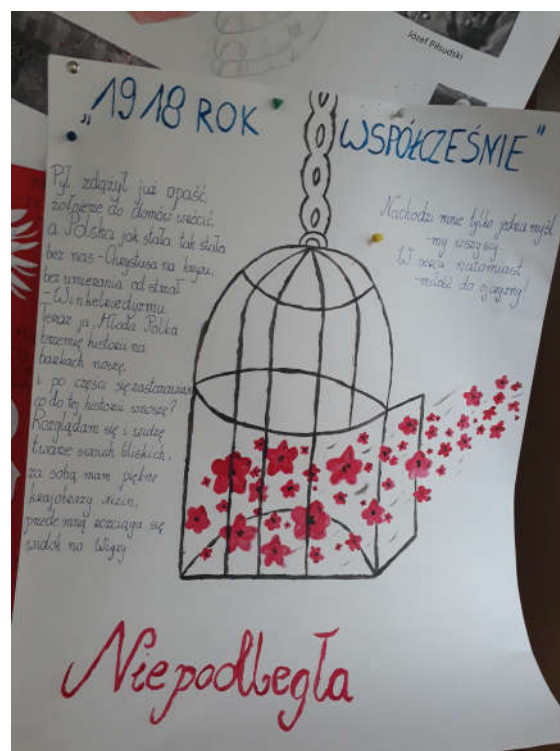 Józef Piłsudski
"1918 ROK
WSPÓŁCZEŚNIE"
Pył zdążył już opaść,
żołnierze do domów wrócić
a Polska jak stała tak stała
bez nas - Chrystusa na krzyżu,
bez umierania od strzał
- Winkelriedyzmu.
Teraz ja, Młoda Polka
brzemię historii na
barkach noszę,
i po części się zastanawiam
co do tej historii wnoszę?
Rozglądam się i widzę
twarze swoich bliskich,
za sobą mam piękne
krajobrazy nizin,
przede mną rozciąga się
widok na Wigry
Nachodzi mnie tylko jedna myśl
- my wszyscy
W sercu natomiast
- miłość do ojczyzny!
Niepodległa